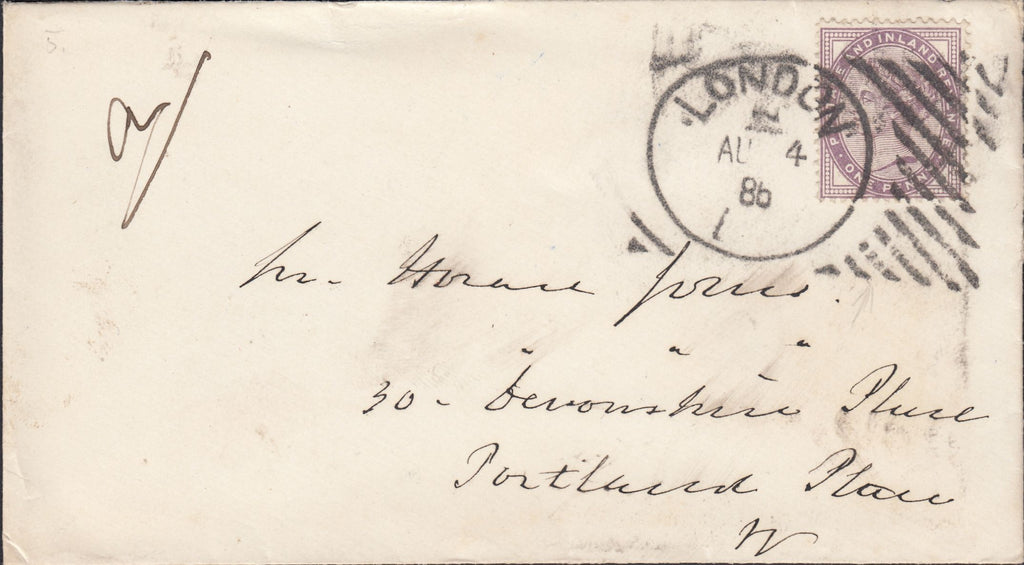 5.
LONDON
AU 4
86
POSTAGE AND INLAND REVENUE
ONE PENNY
Mr. Horace Jones.
" " "
30 - Devonshire Place
Portland Place
W